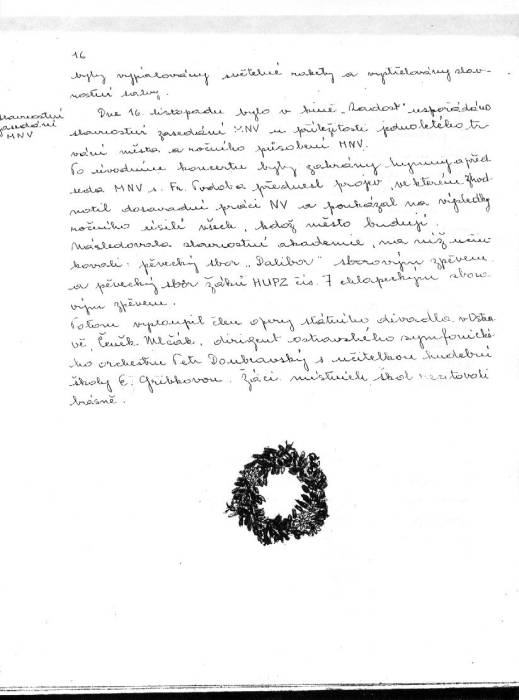 16
byly vypalovány světelné rakety a vystřelovány slav-
nostní salvy.
slavnostní
zasedání
MNV
Dne 16. listopadu bylo v kině „Radost" uspořádáno
slavnostní zasedání MNV u příležitosti jednoletého tr-
vání města a ročního působení MNV.
Po úvodním koncertu byly zahrány hymny a před
seda MNV s. Fr. Podoba přednesl projev, ve kterém zhod
notil dosavadní práci NV a poukázal na výsledky
ročního úsilí všech, kdož město budují.
Následovala slavnostní akademie, na níž účin
kovali: pěvecký sbor „Dalibor" sborovým zpěvem
a pěvecký sbor žáků HUPZ čís. 7 chlapeckým sboro
vým zpěvem.
Potom vystoupil člen opery státního divadla v Ostra
vě, Čeněk Mlčák, dirigent ostravského symfonické-
ho orchestru Petr Doubravský s učitelkou hudební
školy E. Gribkovou. Žáci místních škol recitovali
básně.